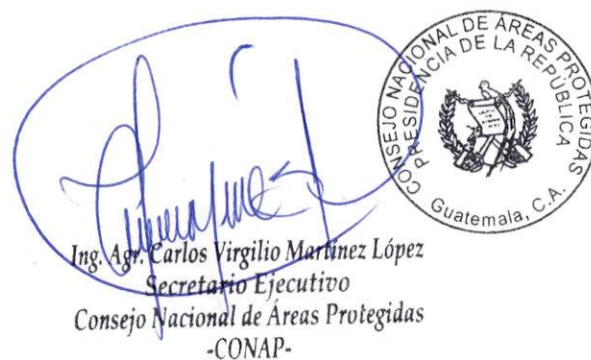 CONSEJO NACIONAL DE ÁREAS PROTEGIDAS
PRESIDENCIA DE LA REPÚBLICA
Guatemala, C.A.
Ing. Agr. Carlos Virgilio Martínez López
Secretario Ejecutivo
Consejo Nacional de Áreas Protegidas
-CONAP-